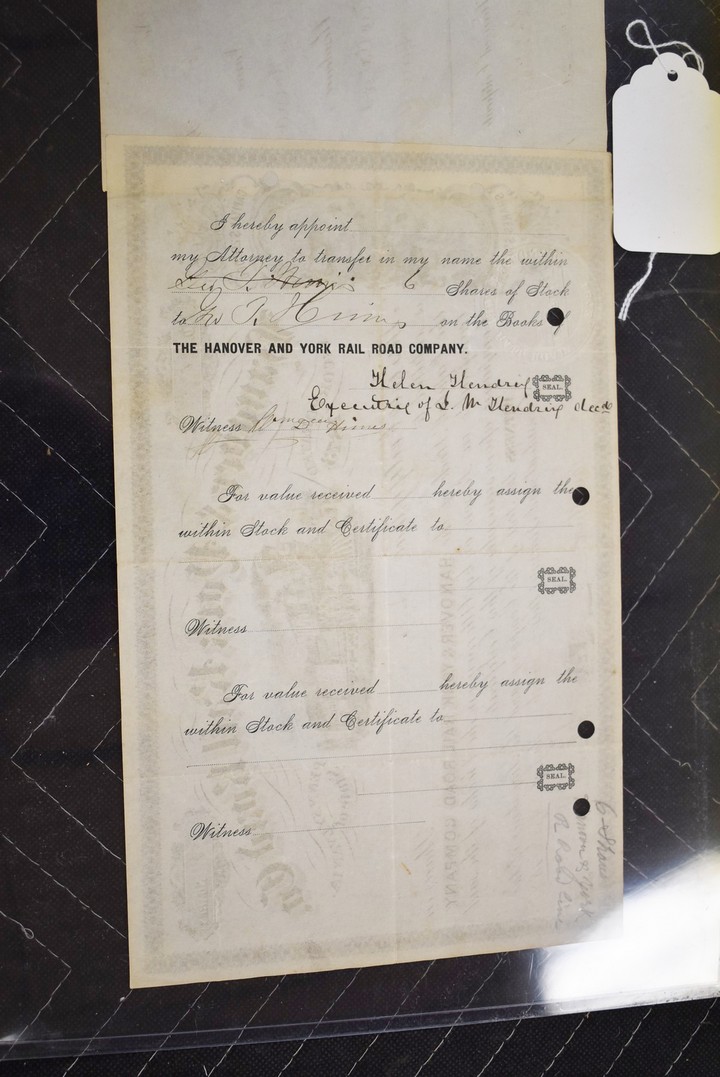 I hereby appoint
my Attorney to transfer in my name the within
Geo T. Himes 6 Shares of Stock
to Geo T. Himes on the Books of
THE HANOVER AND YORK RAIL ROAD COMPANY.
Helen Hendrix SEAL.
Executrix of J. W Hendrix decd
Witness D. Himes
For value received hereby assign the
within Stock and Certificate to
SEAL.
Witness
For value received hereby assign the
within Stock and Certificate to
SEAL.
Witness
6 Shares